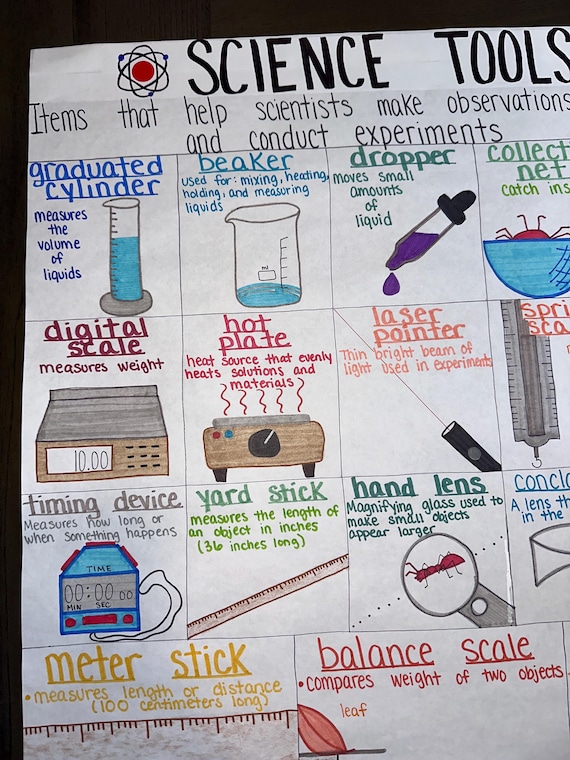 SCIENCE TOOLS
Items that help scientists make observations
and conduct experiments
graduated
cylinder
measures
the
volume
of
liquids
beaker
used for: mixing, heating,
holding, and measuring
liquids
ml
dropper
moves small
amounts
of
liquid
collect
net
catch ins
digital
scale
measures weight
10.00
hot
plate
heat source that evenly
heats solutions and
materials
laser
pointer
Thin bright beam of
light used in experiments
spri
sca
timing device
Measures how long or
when something happens
TIME
00:00 00
MIN SEC
yard stick
measures the length of
an object in inches
(36 inches long)
hand lens
Magnifying glass used to
make small objects
appear larger
conca
A lens th
in the
meter stick
•measures length or distance
(100 centimeters long)
balance scale
•compares weight of two objects
leaf